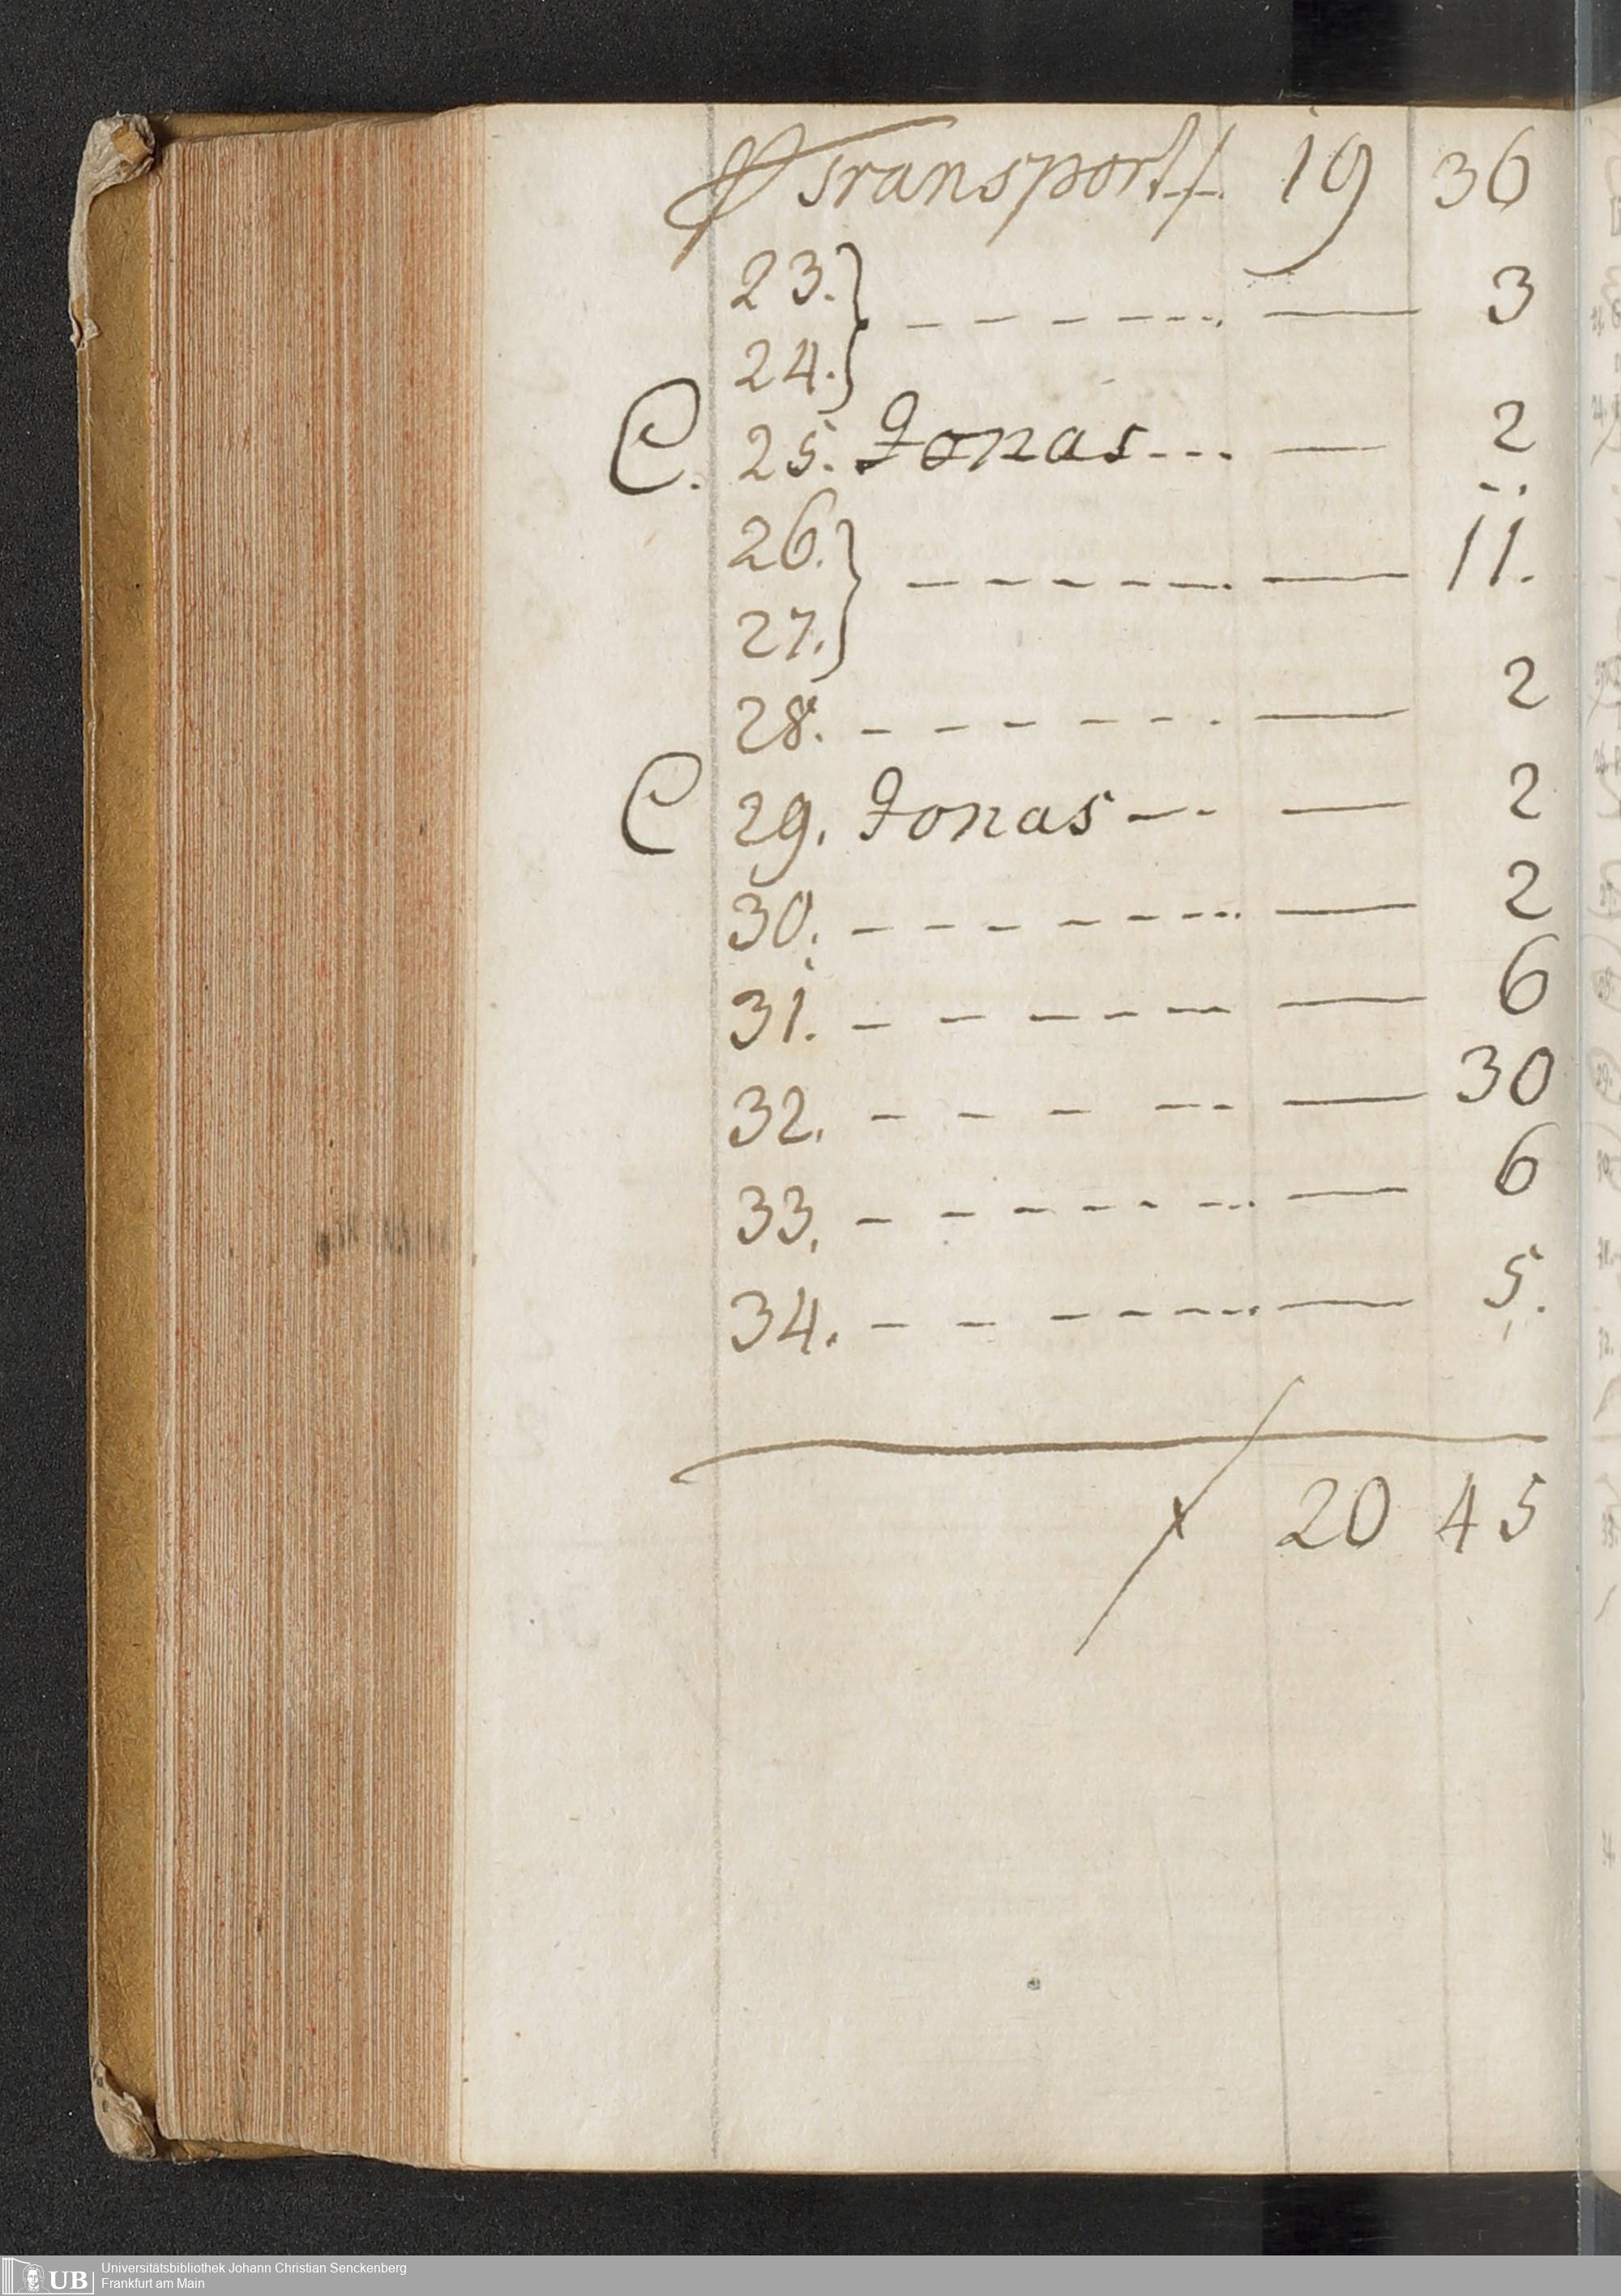 Transport f. 19 36
23. } - - - - - - — 3
24.
C. 25. Jonas - - - — 2
26. } - - - - - — 11.
27.
28. - - - - - - — 2
C 29. Jonas - - - — 2
30. - - - - - - — 2
31. - - - - - — 6
32. - - - - - — 30
33. - - - - - - — 6
34. - - - - - - — 5.
f 20 45
UB Universitätsbibliothek Johann Christian Senckenberg
Frankfurt am Main